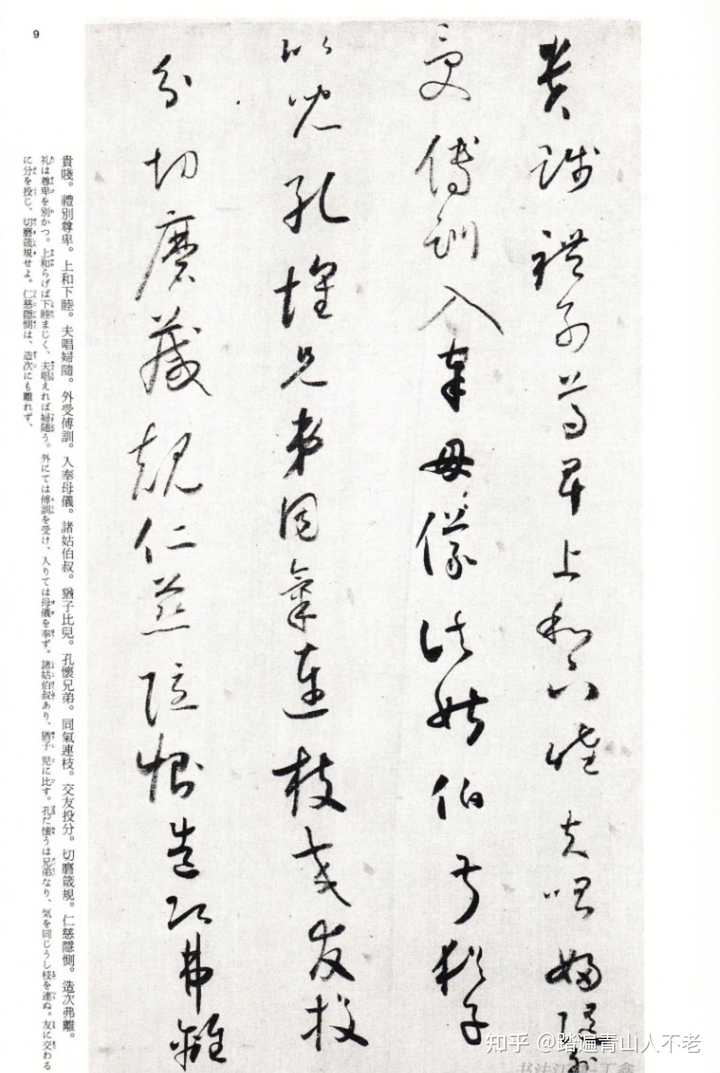 貴賤禮別尊卑上和下睦夫唱婦隨外
受傅訓入奉母儀諸姑伯叔猶子
比兒孔懷兄弟同氣連枝交友投
分切磨箴規仁慈隱惻造次弗離
9
貴賤。禮別尊卑。上和下睦。夫唱婦隨。外受傅訓。入奉母儀。諸姑伯叔。猶子比兒。孔懷兄弟。同氣連枝。交友投分。切磨箴規。仁慈隱惻。造次弗離。
礼は尊卑を別かつ。上和らげば下睦まじく、夫唱えれば婦随う。外にては傅訓を受け、入りては母儀を奉ず。諸姑伯叔あり、猶子 児に比す。孔だ懐うは兄弟なり、気を同じうし枝を連ぬ。友に交わる
に分を投じ、切磨箴規せよ。仁慈隠惻は、造次にも離れず、
知乎 @踏遍青山人不老